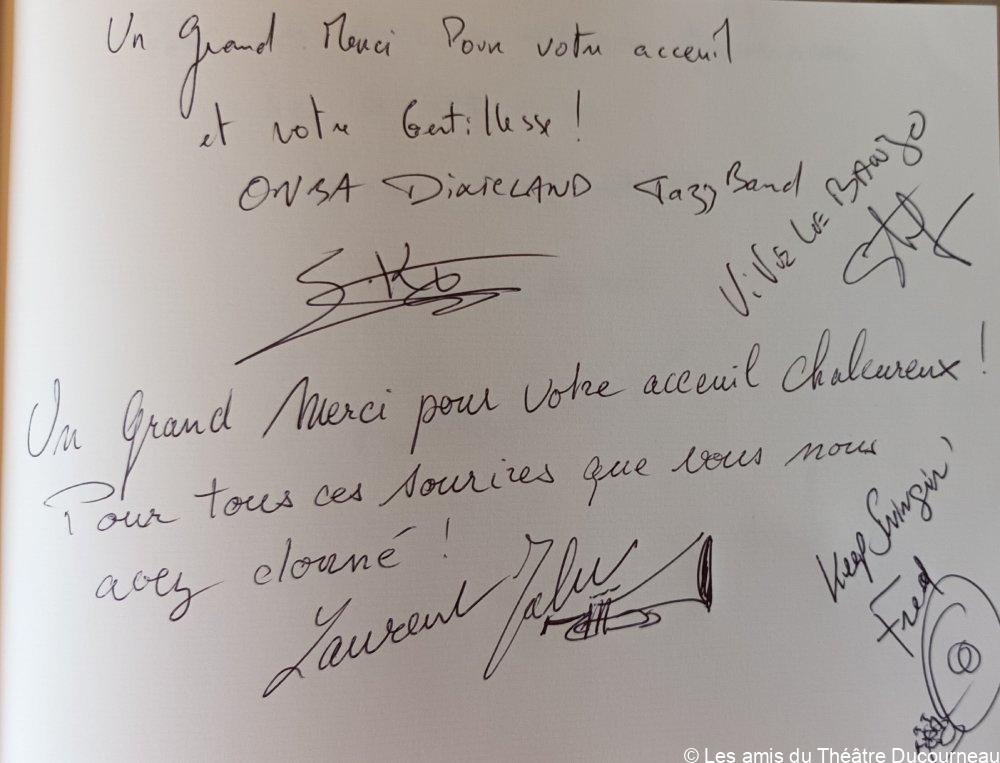 Un Grand Merci Pour votre acceuil
et votre Gentillesse !
ONBA DIXIELAND Jazz Band
ViVE LE BANJO
Un Grand Merci pour votre acceuil chaleureux !
Pour tous ces sourires que vous nous
avez donné !
Laurent
Keep Swingin'
Fred
© Les amis du Théâtre Ducourneau